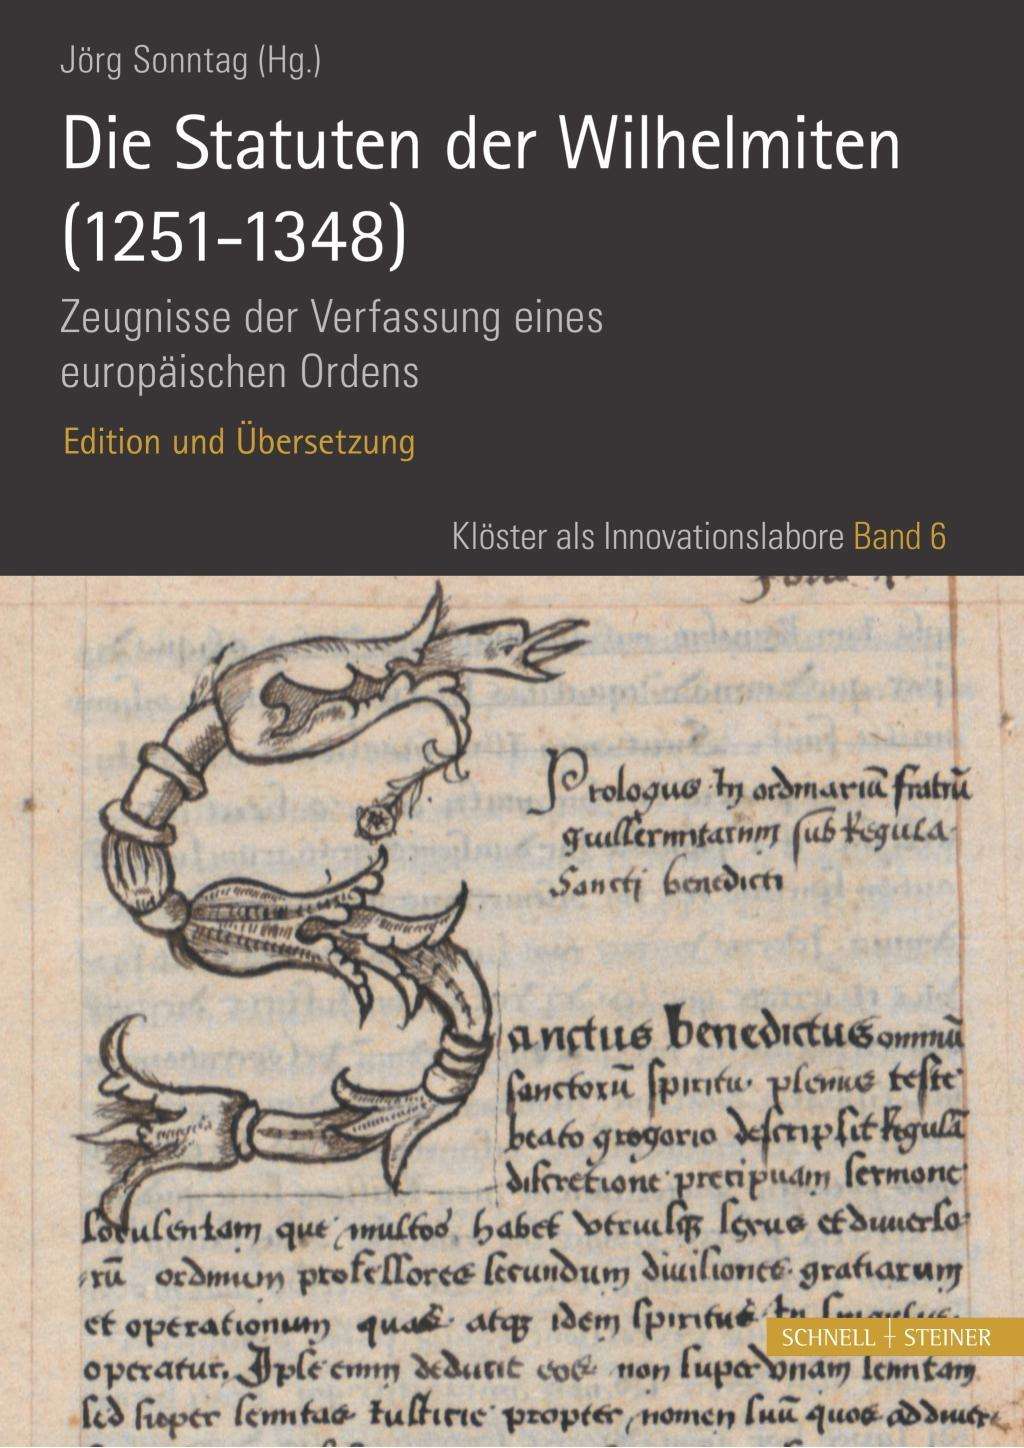 Jörg Sonntag (Hg.)
Die Statuten der Wilhelmiten
(1251–1348)
Zeugnisse der Verfassung eines
europäischen Ordens
Edition und Übersetzung
Klöster als Innovationslabore Band 6
Prologus in ordinariū fratrū
guillermitarum sub Regula
Sancti benedicti
Sanctus benedictus omniū
sanctorū spiritu plenus teste
beato gregorio descripsit Regulā
discretione precipuam sermone
loculentam que multos habet utriusq sexus et diverso
rū ordinum professores secundum divisiones gratiarum
et operationum quas atq idem spiritus in
operatur. Ipse enim deducit eos non super unam semitam
sed super semitas iusticie propter nomen suū quos
SCHNELL + STEINER